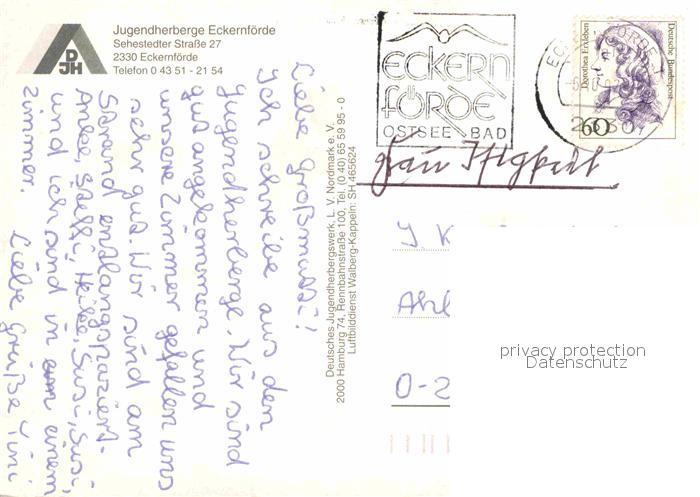 Jugendherberge Eckernförde
Sehestedter Straße 27
2330 Eckernförde
Telefon 0 43 51 - 21 54
DJH
Liebe Großmutti!
Ich schreibe aus der
Jugendherberge. Wir sind
gut angekommen und
unsere Zimmer gefallen uns
sehr gut. Wir sind am
Strand entlangspaziert.
Anke, Steffi, Heike, Susi, Susi,
und ich sind in einem
Zimmer.
Liebe Grüße
Deutsches Jugendherbergswerk, L. V. Nordmark e. V.
2000 Hamburg 74, Rennbahnstraße 100, Tel. (0 40) 65 59 95 - 0
Luftbilddienst Walberg-Kappeln: SH 465624
ECKERN
FÖRDE
OSTSEE BAD
Dorothea Erxleben
Deutsche Bundespost
60
Frau
J. K
Ahl
O-2
privacy protection
Datenschutz